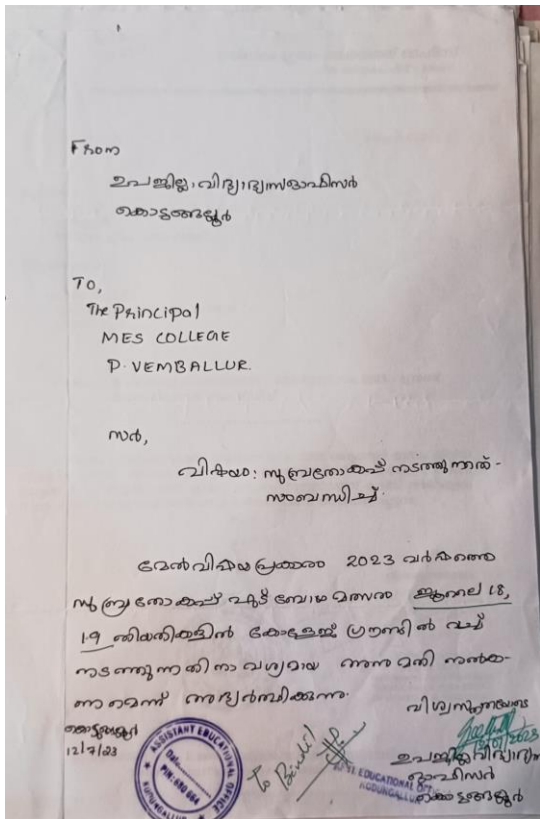 From
ഉപജില്ലാ വിദ്യാഭ്യാസഓഫീസർ
കൊടുങ്ങല്ലൂർ
To,
The Principal
MES COLLEGE
P. VEMBALLUR.
സർ,
വിഷയം: സുബ്രതോകപ്പ് നടത്തുന്നത് -
സംബന്ധിച്ച്.
മേൽവിഷയപ്രകാരം 2023 വർഷത്തെ
സുബ്രതോകപ്പ് ഫുട്ബോൾ മത്സരം ജൂലൈ 18,
19 തിയതികളിൽ കോളേജ് ഗ്രൗണ്ടിൽ വച്ച്
നടത്തുന്നതിനാവശ്യമായ അനുമതി നൽക-
ണമെന്ന് അഭ്യർത്ഥിക്കുന്നു.
വിശ്വസ്തതയോടെ
കൊടുങ്ങല്ലൂർ
12/7/23
ASSISTANT EDUCATIONAL OFFICE
PIN: 680 664
KODUNGALLUR
To Bindhil
EDUCATIONAL
KODUNGALLUR
ഉപജില്ലാവിദ്യാഭ്യാസ
ഓഫീസർ
കൊടുങ്ങല്ലൂർ